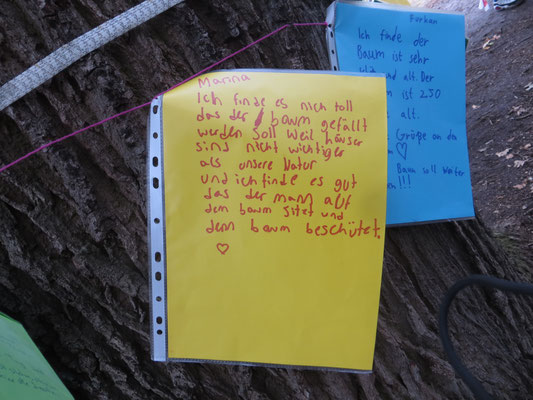 Marina
Ich finde es nich toll
das der baum gefällt
werden soll weil häuser
sind nicht wichtiger
als unsere Natur
und ich finde es gut
das der mann auf
dem baum sitzt und
denn baum beschützt.
♡
Furkan
Ich finde der
Baum ist sehr
und alt. Der
ist 250
alt.
Grüße an den
♡
Baum soll weiter
!!!